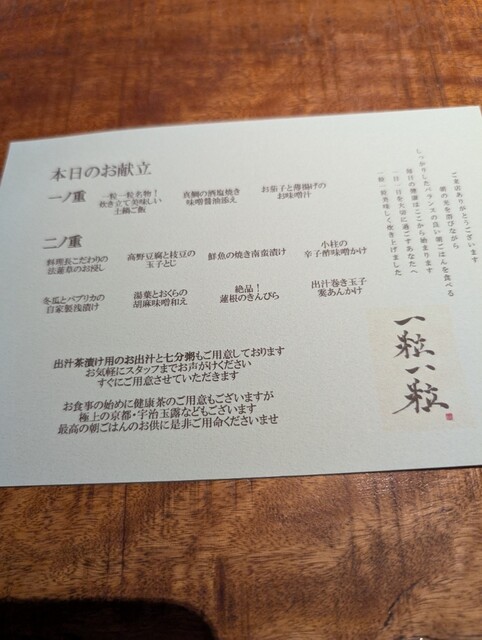 本日のお献立
一ノ重
一粒一粒名物！
炊き立て美味しい
土鍋ご飯
真鯛の酒塩焼き
味噌醤油添え
お茄子と薄揚げの
お味噌汁
二ノ重
料理長こだわりの
法蓮草のお浸し
高野豆腐と枝豆の
玉子とじ
鮮魚の焼き南蛮漬け
小柱の
辛子酢味噌かけ
冬瓜とパプリカの
自家製浅漬け
湯葉とおくらの
胡麻味噌和え
絶品！
蓮根のきんぴら
出汁巻き玉子
葱あんかけ
出汁茶漬け用のお出汁と七分粥もご用意しております
お気軽にスタッフまでお声がけください
すぐにご用意させていただきます
お食事の始めに健康茶のご用意もございますが
極上の京都・宇治玉露などもございます
最高の朝ごはんのお供に是非ご用命くださいませ
ご来店ありがとうございます
朝の光を浴びながら
しっかりしたバランスの良い朝ごはんを食べる
毎日の健康はここから始まります
一日一日を大切に過ごすあなたへ
一粒一粒美味しく炊き上げました
一粒一粒